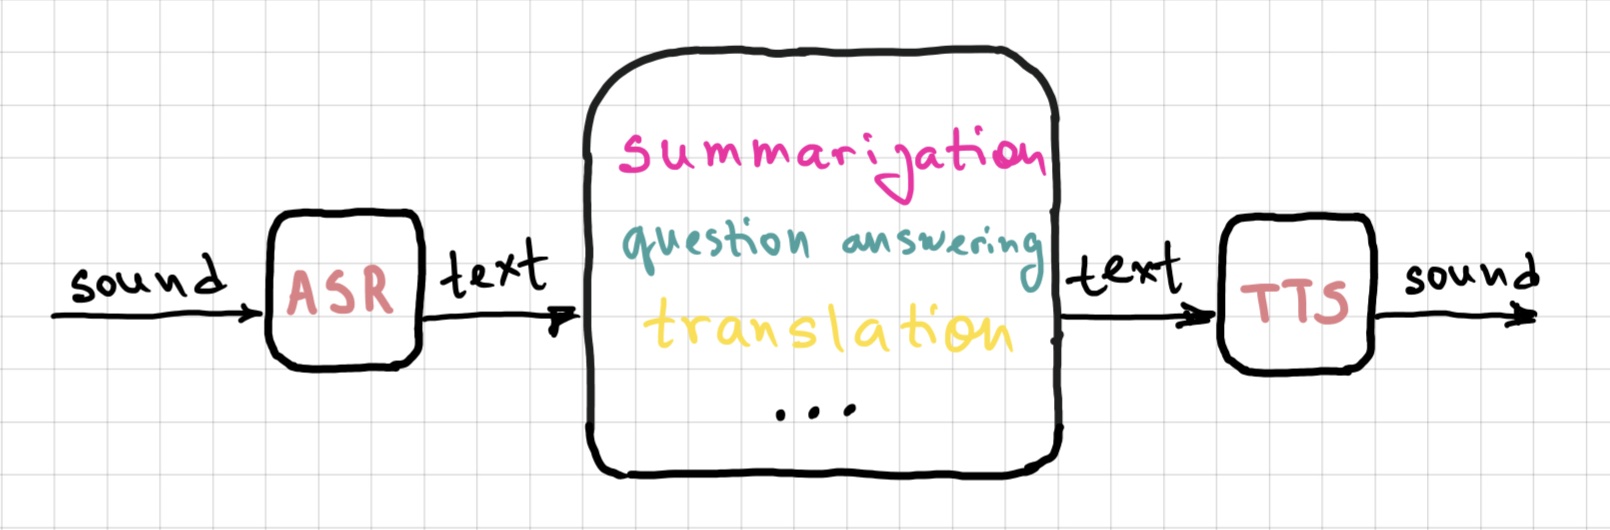 sound
ASR
text
summarization
question answering
translation
...
text
TTS
sound